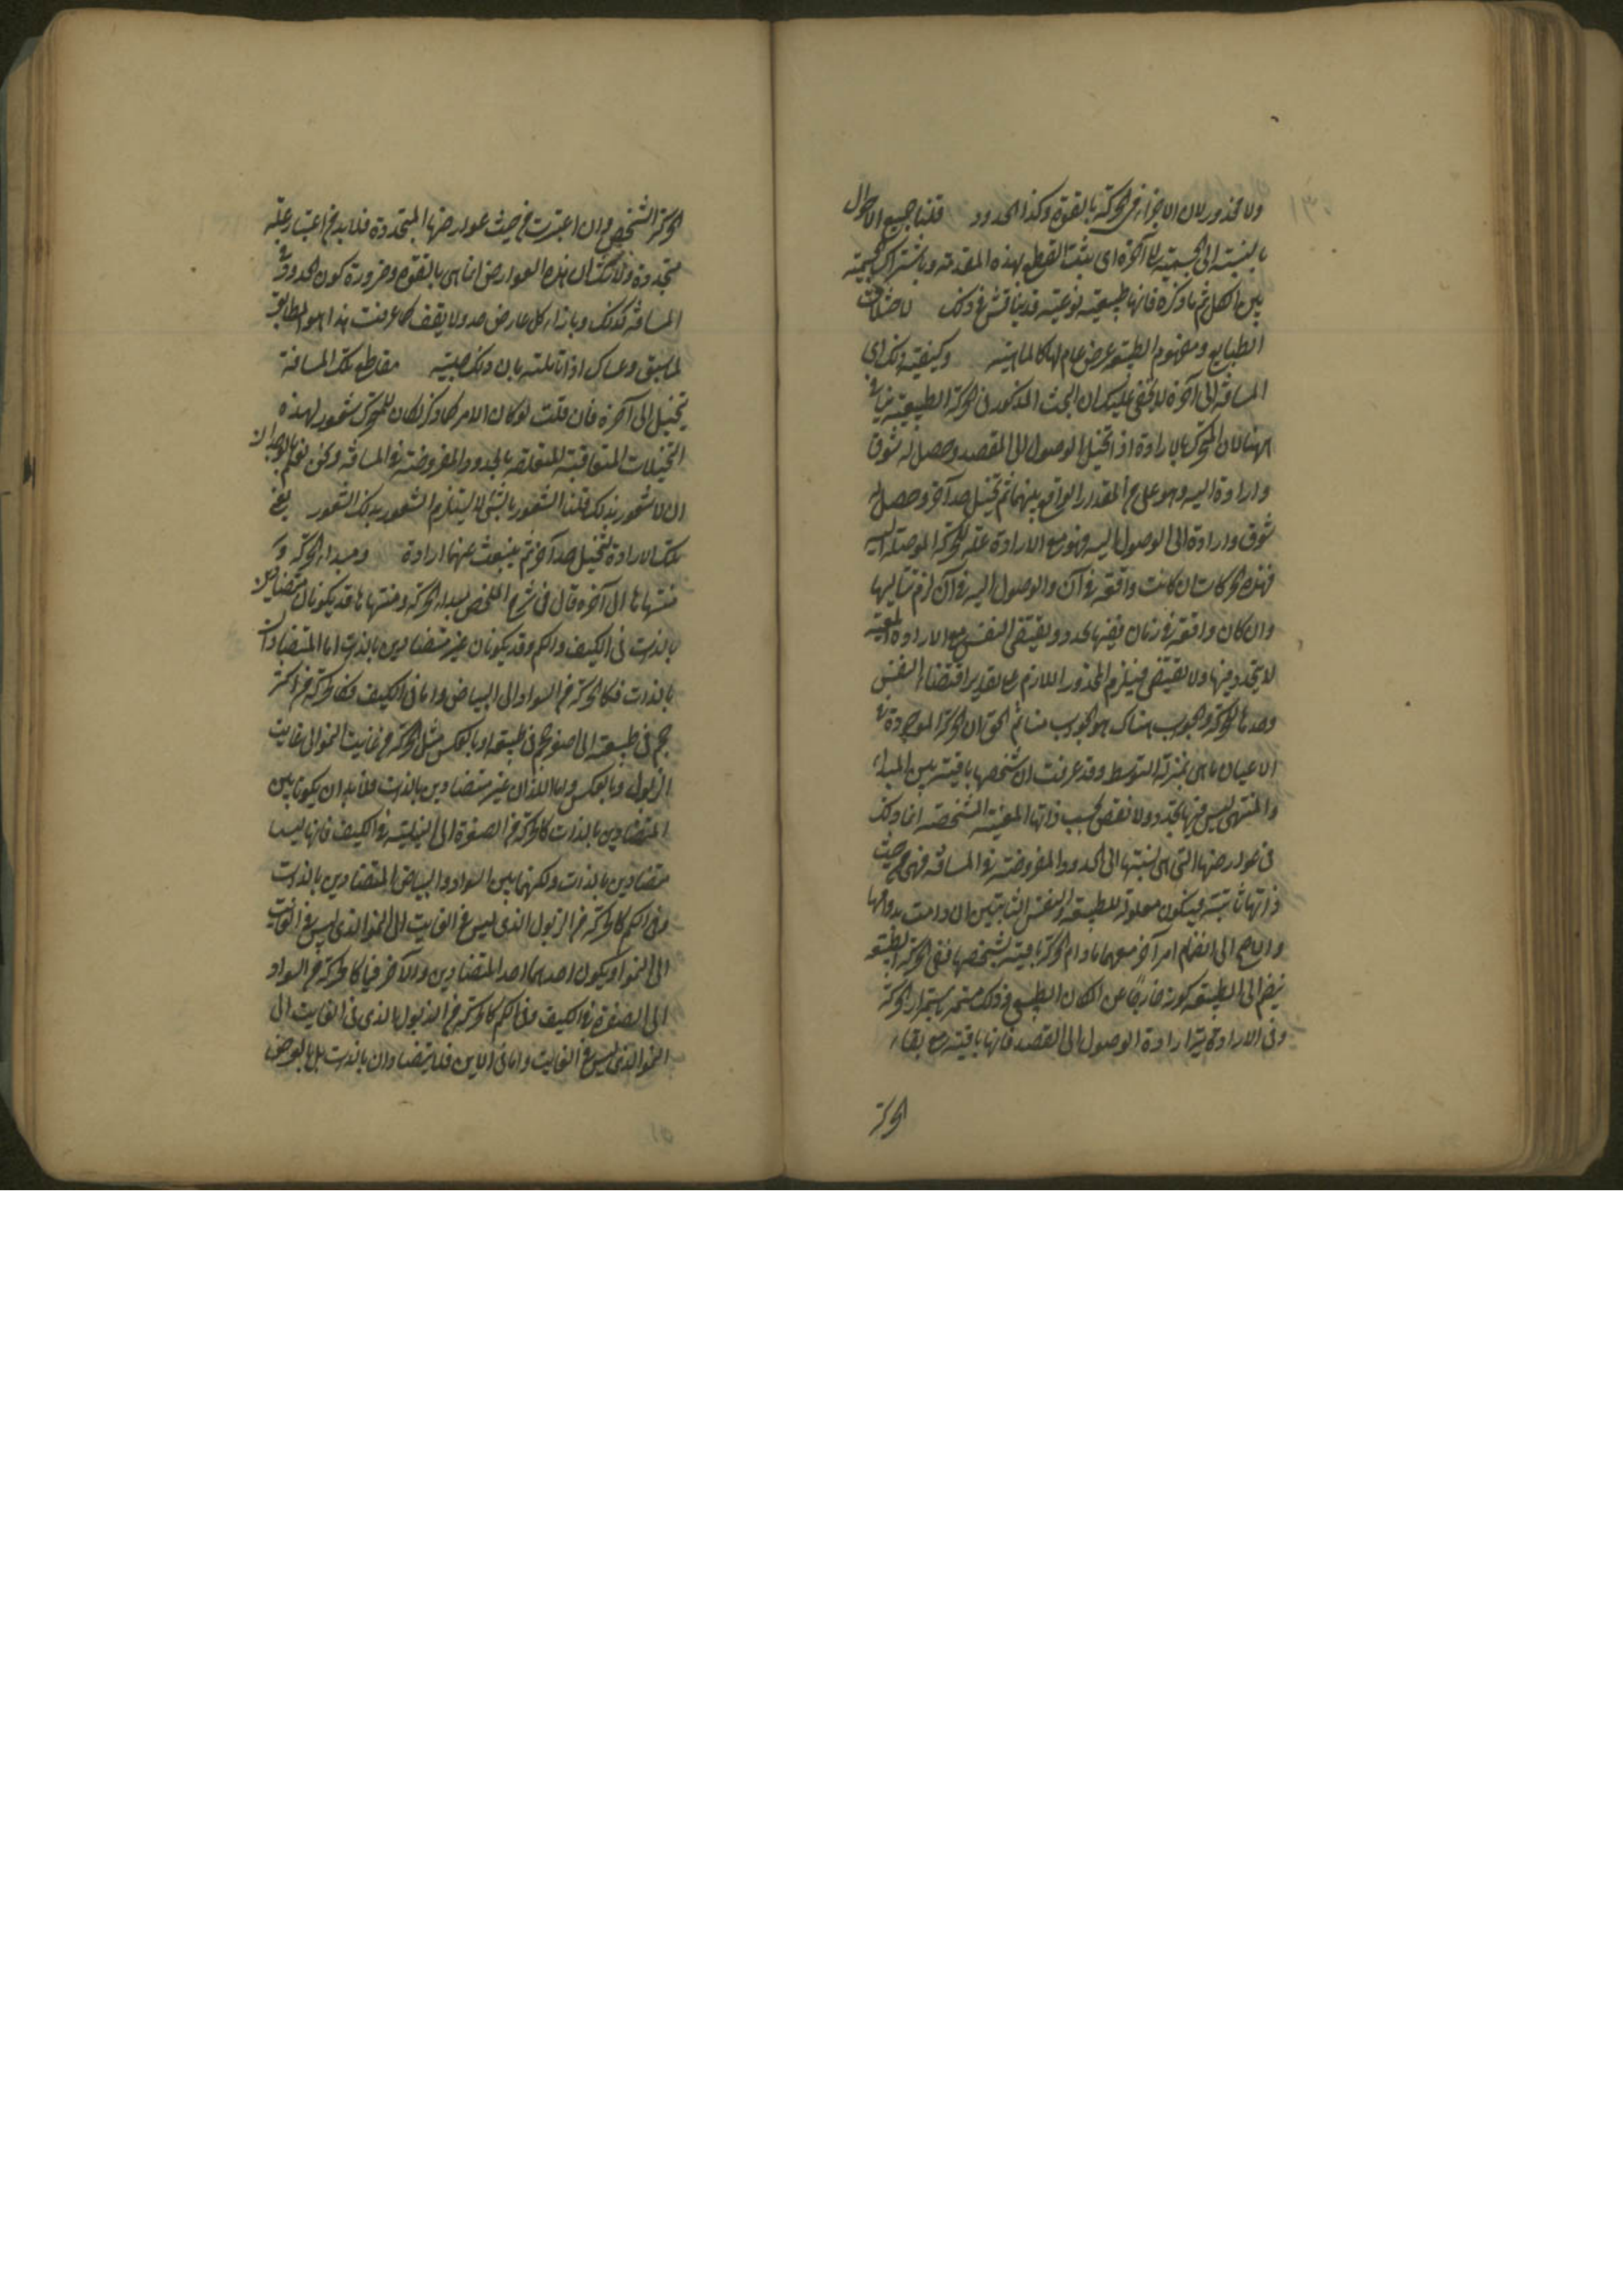 ١٣٠
ولا محذور لان الاجزاء في الحركة بالقوة وكذا الحدود قلنا جميع الاحوال
بالنسبة الى الجسمية الى آخره اى يثبت القطع بهذه المقدمة وباشتراك الجسمية
بين الكل ثم ما ذكره فانها طبيعية نوعية قد يناقش في ذلك لاختلاف
الطبايع ومفهوم الطبيعة عرض عام لها كالماهية وكيفية ذلك اى
المسافة الى آخره لا يخفى عليك ان البحث المذكور في الحركة الطبيعية يتأتى
ههنا لان المتحرك بالارادة اذا تخيل الوصول الى المقصد وحصل له شوق
وارادة اليه وهو على المقدر الواقع بينهما ثم تخيل حدا آخر وحصل له
شوق وارادة الى الوصول اليه فهو مع الارادة علة للحركة الموصلة اليه
فهذه الحركات ان كانت واقعة في آن والوصول اليه في آن لزم تتاليها
وان كان واقعة في زمان ففيها تجدد وتقتضى النفس مع الارادة المعينة
لا تجدد فيها ولا تقتضى فيلزم المحذور اللازم على تقدير اقتضاء النفس
وحدها الحركة والجواب هناك هو الجواب هنا ثم الحق ان الحركة الموجودة في
الاعيان ما هى بمنزلة التوسط وقد عرفت ان شخصها باقية بين المبداء
والمنتهى ليس فيها تجدد ولا نقص بحسب ذاتها المعينة الشخصية انما ذلك
في عوارضها التى هى نسبتها الى الحدود المفروضة في المسافة فهى من حيث
ذاتها ثابتة فيكون معلولة للطبيعة والنفس الثابتتين ان دامت بدوامها
والاحتاج الى انضمام امر آخر معهما ما دام الحركة باقية بشخصها ففى الحركة الطبيعية
ينضم الى الطبيعة كونه خارجا عن المكان الطبيعى وذلك مستمر باستمرار الحركة
وفى الارادية ارادة الوصول الى المقصد فانها باقية مع بقاء
الحركة
الحركة الشخص وان اعتبرت من حيث عوارضها المتجددة فلا بد من اعتبار علة
متجددة ولا شك ان هذه العوارض انما هى بالقوة وضرورة كون الحدود في
المسافة كذلك وبازاء كل عارض حد ولا يقف كما عرفت هذا هو المطابق
لما سبق وعساك اذا تأملته بان ذلك جلية مقاطع تلك المسافة
يتخيل الى آخره فان قلت لو كان الامر كما ذكر لكان للمتحرك شعور لهذه
التخيلات المتعاقبة المتعلقة بالحدود المفروضة في المسافة ونحن نعلم بالوجدان
ان لا شعور بذلك قلنا الشعور بالشئ لا يستلزم الشعور بذلك الشعور يقع
تلك الارادة لتخيل حد آخر ثم ينبعث عنها ارادة ومبداء الحركة و
منتهاها الى آخره قال في شرح الملخص مبداء الحركة ومنتهاها قد يكونان متضادين
بالذات في الكيف والكم وقد يكونان غير متضادين بالذات اما المتضادان
بالذات فكالحركة من السواد الى البياض واما في الكيف وكالحركة من اكثر
حجم في طبيعته الى اصغر حجم في طبيعته او بالعكس مثل الحركة من غايت النمو الى غايت
الذبول وبالعكس واما اللذان غير متضادين بالذات فلا بد ان يكونا بين
المتضادين بالذات كالحركة من الصفرة الى النيلية في الكيف فانها ليسا
متضادين بالذات ولكنهما بين السواد والبياض المتضادين بالذات
وفى الكم كالحركة من الذبول الذى ليس في الغايت الى النمو الذى ليس في الغايت
الى النمو او يكون احدهما احد المتضادين والآخر فيما كالحركة من السواد
الى الصفرة في الكيف وفى الكم كالحركة من الذبول الذى في الغايت الى
النمو الذى ليس في الغايت واما في الاين فلا يتضادان بالذات بل بالعرض